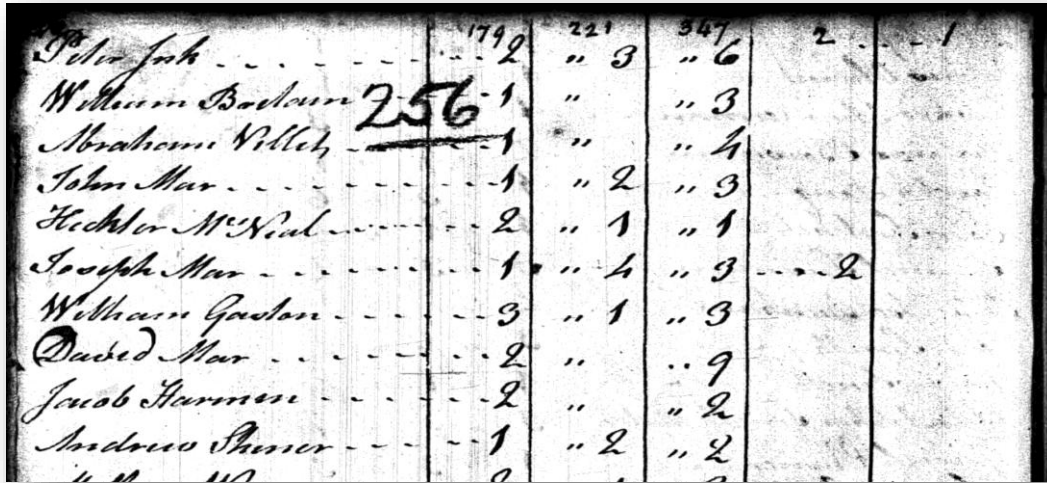 179 221 347 2 1
Peter Ink 2 " 3 " 6
William Boolam 1 " " 3
256
Abraham Villet 1 " " 4
John Mar 1 " 2 " 3
Heckler McNeal 2 " 1 " 1
Joseph Mar 1 " 4 " 3 2
William Gaston 3 " 1 " 3
David Mar 2 " " 9
Jacob Harmen 2 " " 2
Andrew Shiner 1 " 2 " 2